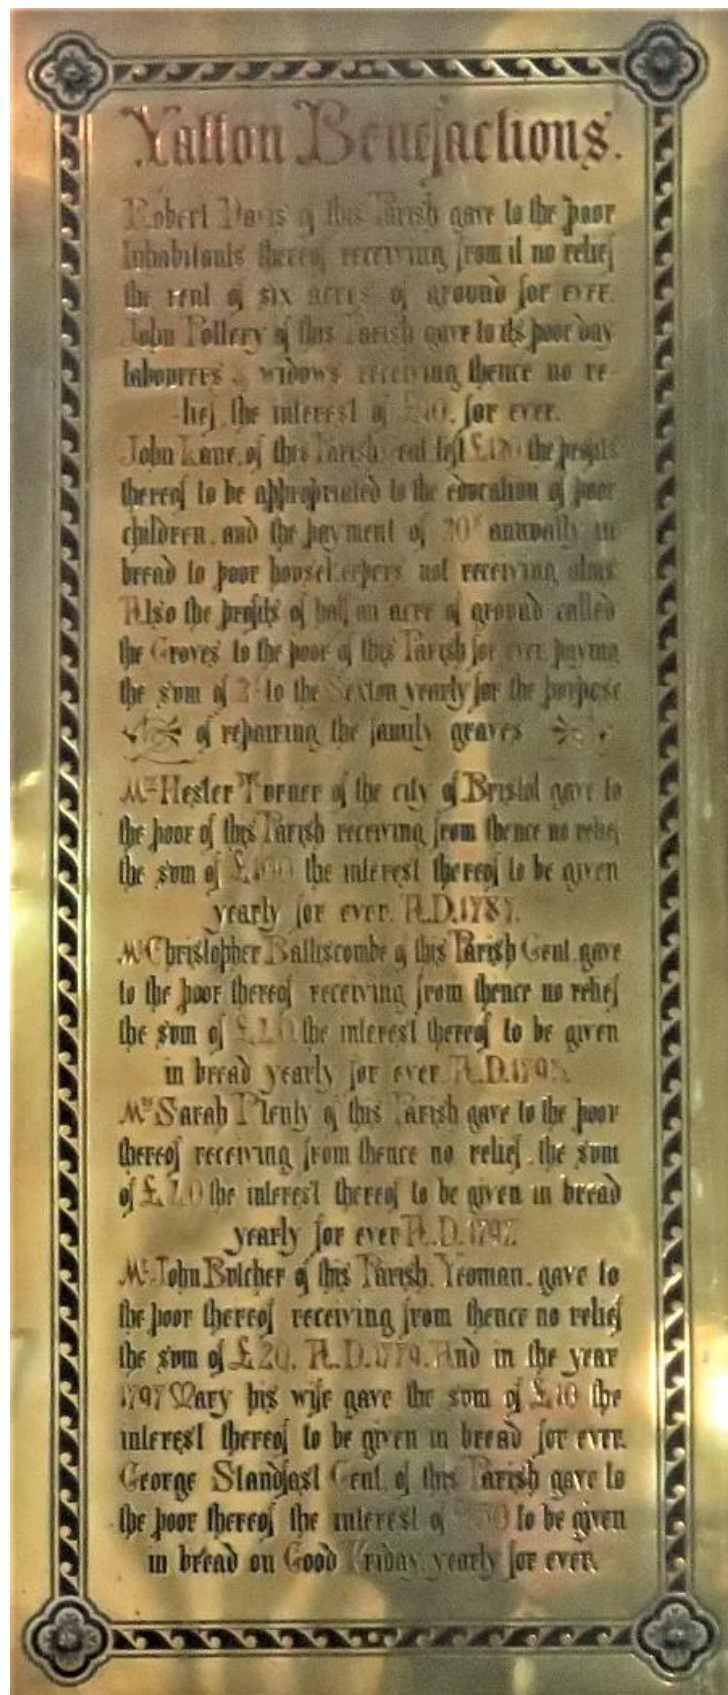 Yatton Benefactions.
Robert Davis of this Parish gave to the poor
Inhabitants thereof receiving from it no relief
the rent of six acres of ground for ever.
John Pollery of this Parish gave to its poor day
labourers & widows receiving thence no re
lief, the interest of £40, for ever.
John Lane, of this Parish left £120 the profits
thereof to be appropriated to the education of poor
children, and the payment of 20s annually in
bread to poor housekeepers not receiving alms
Also the profits of half an acre of ground called
the Groves to the poor of this Parish for ever paying
the sum of to the Sexton yearly for the purpose
of repairing the family graves
Mrs Hester Turner of the city of Bristol gave to
the poor of this Parish receiving from thence no relief
the sum of £100 the interest thereof to be given
yearly for ever. A.D. 1787.
Mr Christopher Balliscombe of this Parish Gent. gave
to the poor thereof receiving from thence no relief
the sum of £20 the interest thereof to be given
in bread yearly for ever A.D.
Mrs Sarah Plenty of this Parish gave to the poor
thereof receiving from thence no relief, the sum
of £20 the interest thereof to be given in bread
yearly for ever A.D. 1797.
Mr John Butcher of this Parish, Yeoman, gave to
the poor thereof receiving from thence no relief
the sum of £20, A.D. 1779. And in the year
1797 Mary his wife gave the sum of £10 the
interest thereof to be given in bread for ever.
George Standfast Gent. of this Parish gave to
the poor thereof the interest of to be given
in bread on Good Friday, yearly for ever.